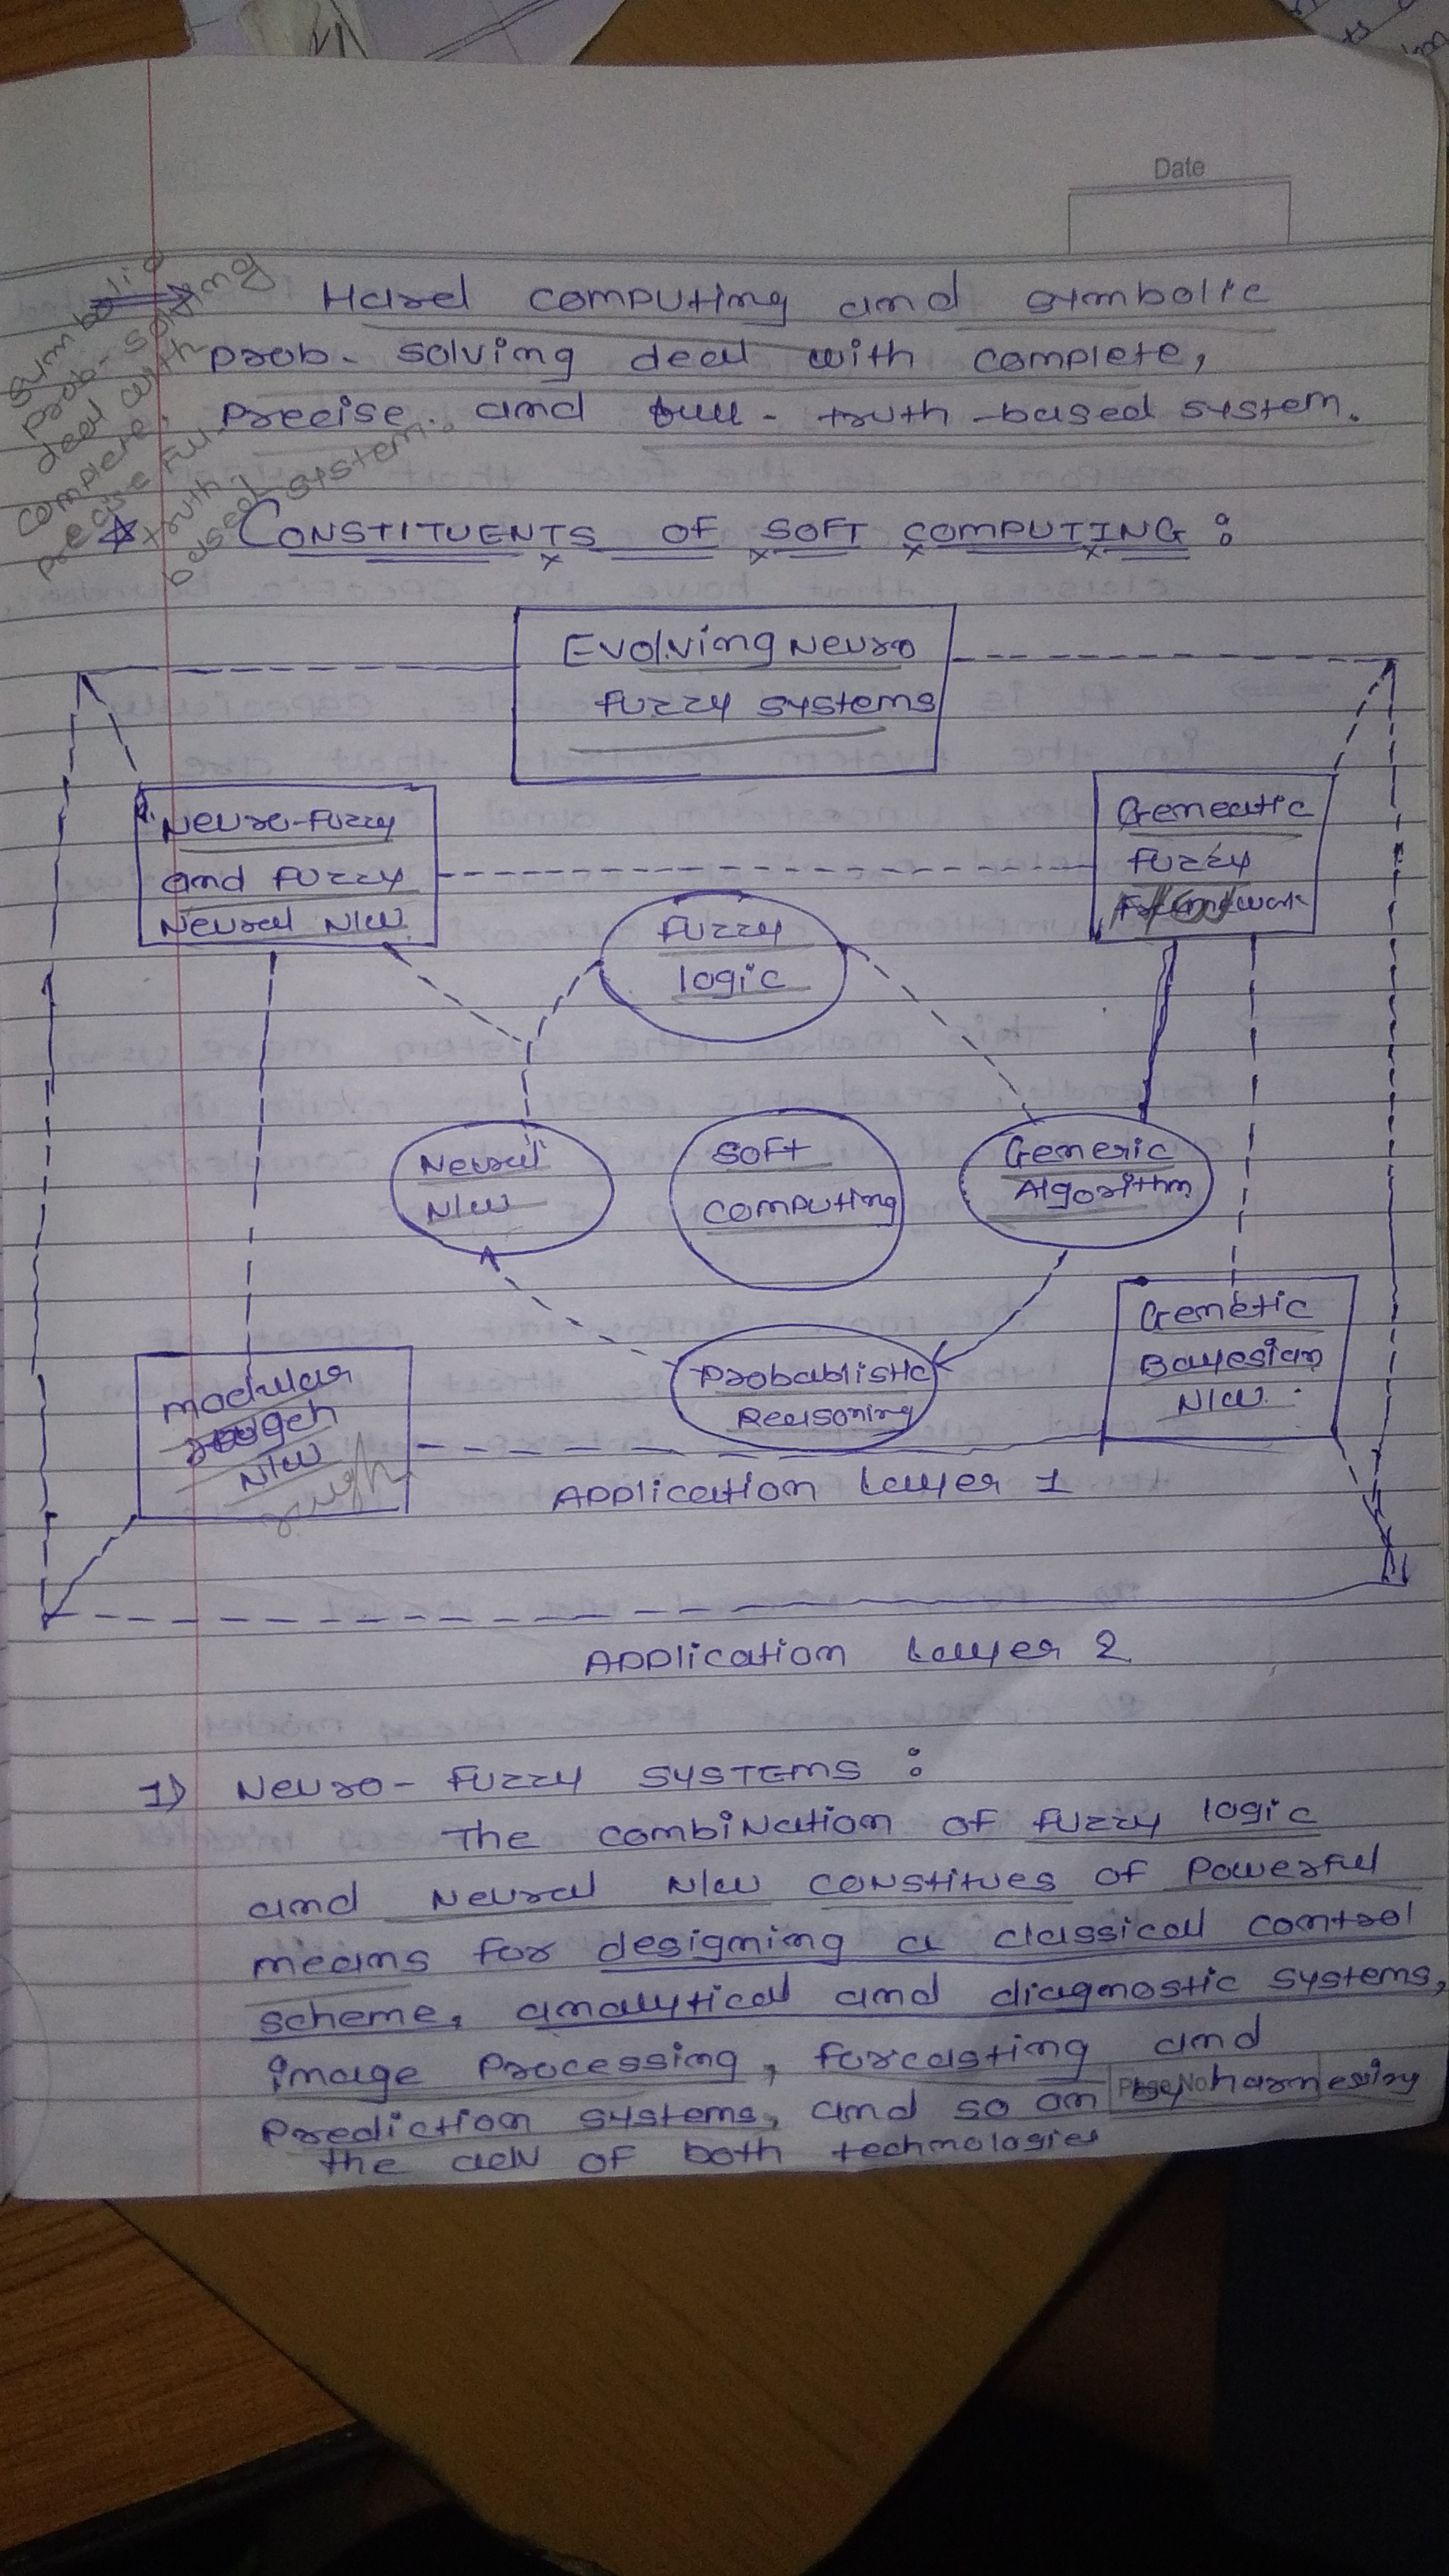 Date
Hard computing and simbolic
prob. solving deal with complete,
precise. and full - truth -based system.
symbolic
prob- solving
deal with
complete,
precise ful-
truth-
based system.
☆ CONSTITUENTS OF SOFT COMPUTING :
Evolving Neuro
fuzzy systems
Neuro-fuzzy
and fuzzy
Neural N/W
Geneatic
fuzzy
fuzzy
logic
Neural
N/W
Soft
computing
Generic
Algorithm
Genetic
Bayesian
N/W.
Probablistic
Reasoning
modular
N/W
rough
Application Layer 1
Application Layer 2
1) Neuro - fuzzy SYSTEMS :
The combination of fuzzy logic
and Neural N/W constitues of powerful
means for designing a classical control
scheme, analytical and diagnostic systems,
image processing, forcasting and
prediction systems, and so on by harnessing
Page No
the adv of both technologies